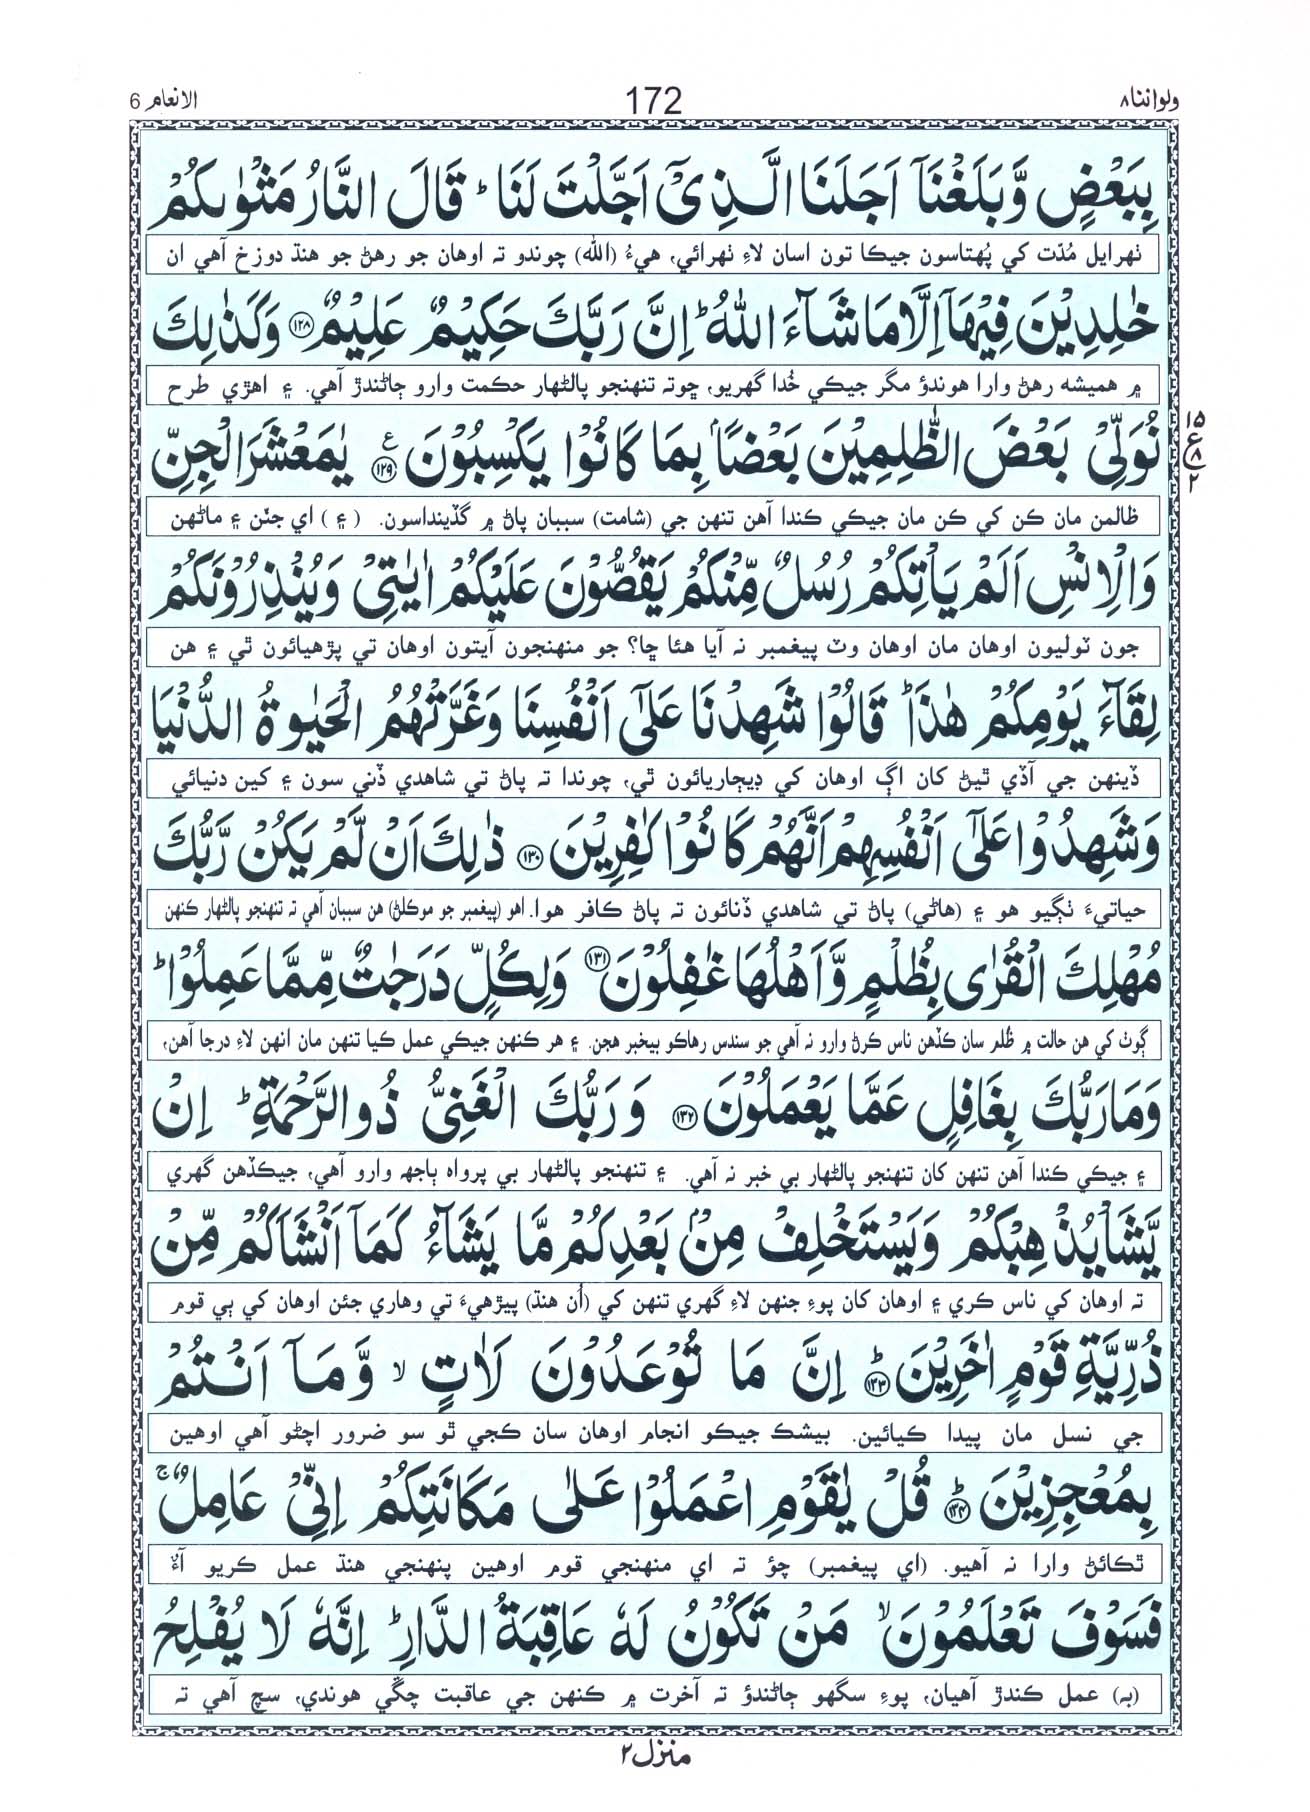 ولواننا ٨
172
الانعام 6
بِبَعْضٍ وَّبَلَغْنَاۤ اَجَلَنَا الَّذِیْۤ اَجَّلْتَ لَنَا ؕ قَالَ النَّارُ مَثْوٰىكُمْ
ٺهرايل مُدّت کي پُهتاسون جيڪا تون اسان لاءِ ٺهرائي، هيءُ (الله) چوندو تہ اوهان جو رهڻ جو هنڌ دوزخ آهي ان
خٰلِدِیْنَ فِیْهَاۤ اِلَّا مَا شَآءَ اللّٰهُ ؕ اِنَّ رَبَّكَ حَكِیْمٌ عَلِیْمٌ ﴿۱۲۸﴾ وَكَذٰلِكَ
۾ هميشہ رهڻ وارا هوندؤ مگر جيڪي خُدا گهريو، ڇوتہ تنهنجو پالڻهار حڪمت وارو ڄاڻندڙ آهي. ۽ اهڙي طرح
نُوَلِّیْ بَعْضَ الظّٰلِمِیْنَ بَعْضًۢا بِمَا كَانُوْا یَكْسِبُوْنَ ﴿۱۲۹﴾ ع یٰمَعْشَرَ الْجِنِّ
۱۵
ع ۸
۲
ظالمن مان ڪن کي ڪن مان جيڪي ڪندا آهن تنهن جي (شامت) سببان پاڻ ۾ گڏينداسون. ( ۽ ) اي جنّن ۽ ماڻهن
وَالْاِنْسِ اَلَمْ یَاْتِكُمْ رُسُلٌ مِّنْكُمْ یَقُصُّوْنَ عَلَیْكُمْ اٰیٰتِیْ وَیُنْذِرُوْنَكُمْ
جون ٽوليون اوهان مان اوهان وٽ پيغمبر نہ آيا هئا ڇا؟ جو منهنجون آيتون اوهان تي پڙهيائون ٿي ۽ هن
لِقَآءَ یَوْمِكُمْ هٰذَا ؕ قَالُوْا شَهِدْنَا عَلٰۤی اَنْفُسِنَا وَغَرَّتْهُمُ الْحَیٰوةُ الدُّنْیَا
ڏينهن جي آڏي ٿيڻ کان اڳ اوهان کي ڊيڄاريائون ٿي، چوندا تہ پاڻ تي شاهدي ڏني سون ۽ کين دنيائي
وَشَهِدُوْا عَلٰۤی اَنْفُسِهِمْ اَنَّهُمْ كَانُوْا كٰفِرِیْنَ ﴿۱۳۰﴾ ذٰلِكَ اَنْ لَّمْ یَكُنْ رَّبُّكَ
حياتيءَ ٺڳيو هو ۽ (هاڻي) پاڻ تي شاهدي ڏنائون تہ پاڻ ڪافر هوا. اهو (پيغمبر جو موڪلڻ) هن سببان آهي تہ تنهنجو پالڻهار ڪنهن
مُهْلِكَ الْقُرٰی بِظُلْمٍ وَّاَهْلُهَا غٰفِلُوْنَ ﴿۱۳۱﴾ وَلِكُلٍّ دَرَجٰتٌ مِّمَّا عَمِلُوْا ؕ
ڳوٺ کي هن حالت ۾ ظُلم سان ڪڏهن ناس ڪرڻ وارو نہ آهي جو سندس رهاڪو بيخبر هجن. ۽ هر ڪنهن جيڪي عمل ڪيا تنهن مان انهن لاءِ درجا آهن،
وَمَا رَبُّكَ بِغَافِلٍ عَمَّا یَعْمَلُوْنَ ﴿۱۳۲﴾ وَرَبُّكَ الْغَنِیُّ ذُو الرَّحْمَةِ ؕ اِنْ
۽ جيڪي ڪندا آهن تنهن کان تنهنجو پالڻهار بي خبر نہ آهي. ۽ تنهنجو پالڻهار بي پرواه ٻاجهہ وارو آهي، جيڪڏهن گهري
یَّشَاْ یُذْهِبْكُمْ وَیَسْتَخْلِفْ مِنْۢ بَعْدِكُمْ مَّا یَشَآءُ كَمَاۤ اَنْشَاَكُمْ مِّنْ
تہ اوهان کي ناس ڪري ۽ اوهان کان پوءِ جنهن لاءِ گهري تنهن کي (اُن هنڌ) پيڙهيءَ تي وهاري جئن اوهان کي ٻي قوم
ذُرِّیَّةِ قَوْمٍ اٰخَرِیْنَ ﴿۱۳۳﴾ؕ اِنَّ مَا تُوْعَدُوْنَ لَاٰتٍ ۙ وَّمَاۤ اَنْتُمْ
جي نسل مان پيدا ڪيائين. بيشڪ جيڪو انجام اوهان سان ڪجي ٿو سو ضرور اچڻو آهي اوهين
بِمُعْجِزِیْنَ ﴿۱۳۴﴾ؕ قُلْ یٰقَوْمِ اعْمَلُوْا عَلٰی مَكَانَتِكُمْ اِنِّیْ عَامِلٌ ۚ
ٿڪائڻ وارا نہ آهيو. (اي پيغمبر) چؤ تہ اي منهنجي قوم اوهين پنهنجي هنڌ عمل ڪريو آءٌ
فَسَوْفَ تَعْلَمُوْنَ ۙ مَنْ تَكُوْنُ لَهٗ عَاقِبَةُ الدَّارِ ؕ اِنَّهٗ لَا یُفْلِحُ
(بہ) عمل ڪندڙ آهيان، پوءِ سگهو ڄاڻندؤ تہ آخرت ۾ ڪنهن جي عاقبت چڱي هوندي، سچ آهي تہ
منزل ٢